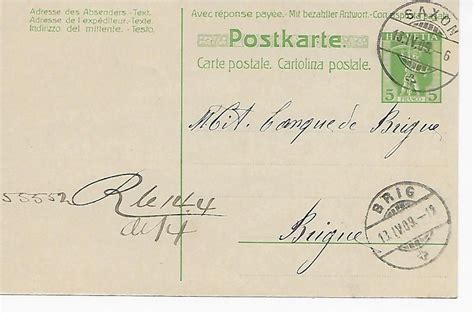 Adresse des Absenders.-Text.
Adresse de l'expéditeur.-Texte.
Indirizzo del mittente.-Testo.
Avec réponse payée.-Mit bezahlter Antwort.-Con risposta pagata.
Postkarte.
Carte postale. Cartolina postale.
HELVETIA
5 5
SAXON
13.IV.09.- 6
Mit. Banque de Brigue
Brigue
BRIG
13.IV.09.-12
55552